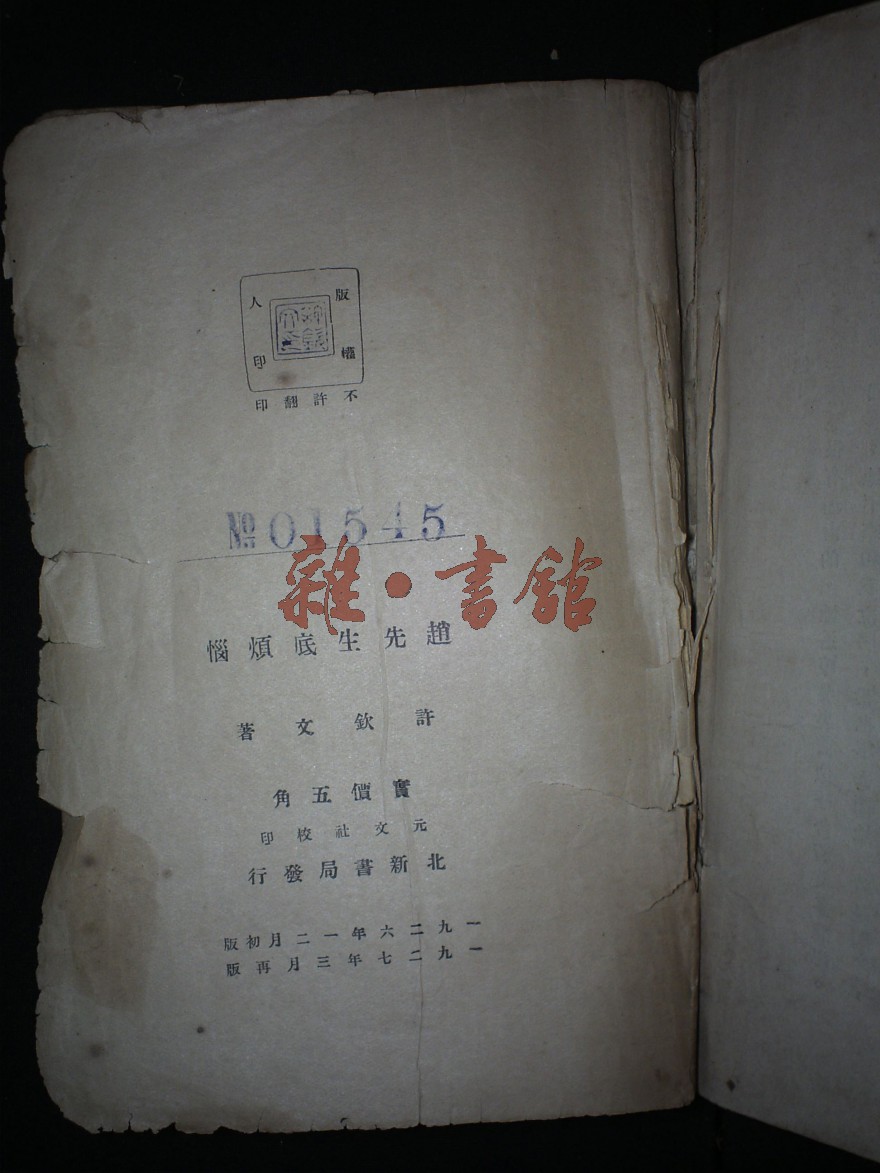 版權
人印
不許翻印
№ 01545
雜·書館
趙先生底煩惱
許欽文著
實價五角
元文社校印
北新書局發行
一九二六年一二月初版
一九二七年三月再版